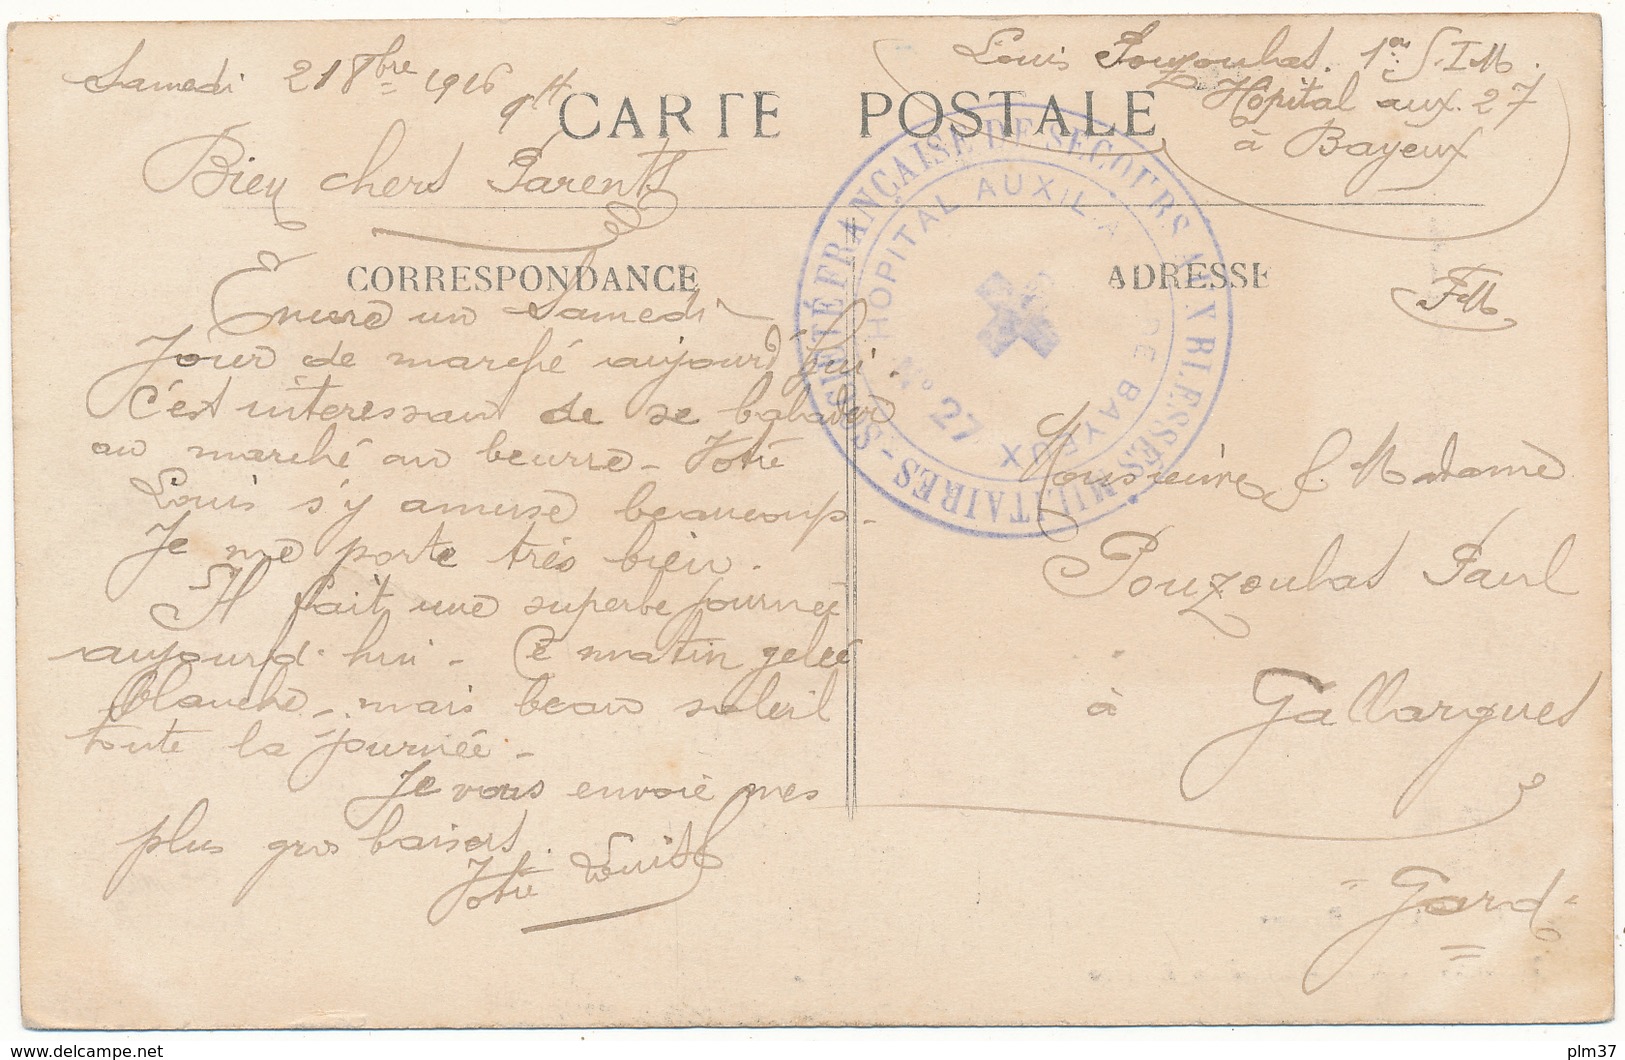 Samedi 21 8bre 1916 9H
Louis Pouzoulat. 1er S.I.M.
Hôpital aux. 27
à Bayeux
CARTE POSTALE
Bien chers Parents
CORRESPONDANCE
ADRESSE
FM
SOCIÉTÉ FRANÇAISE DE SECOURS AUX BLESSÉS MILITAIRES -
HOPITAL AUXILIAIRE BAYEUX
N° 27
Encore un Samedi
Jour de marché aujourd'hui.
C'est interessant de se balader
au marché au beurre - Votre
Louis s'y amuse beaucoup -
Je me porte très bien.
Il fait une superbe journée
aujourd'hui - Ce matin gelée
blanche - mais beau soleil
toute la journée -
Je vous envoie mes
plus gros baisers.
Votre Louis
Monsieur & Madame
Pouzoulat Paul
à Gallargues
Gard
delcampe.net
plm37